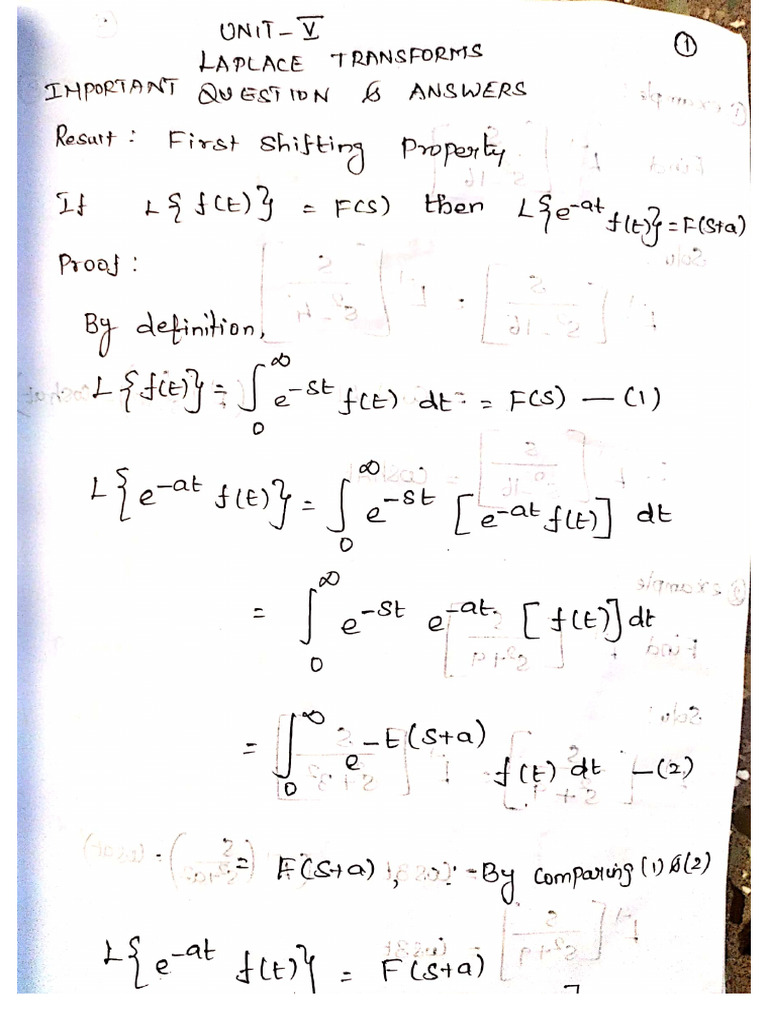 ①
UNIT-V
LAPLACE TRANSFORMS
IMPORTANT QUESTION & ANSWERS
Result: First Shifting Property
If L{f(t)} = F(s) then L{e^-at f(t)} = F(s+a)
Proof:
By definition,
L{f(t)} = ∫₀^∞ e^-st f(t) dt = F(s) — (1)
L{e^-at f(t)} = ∫₀^∞ e^-st [e^-at f(t)] dt
= ∫₀^∞ e^-st e^-at [f(t)] dt
= ∫₀^∞ e^-t(s+a) f(t) dt —(2)
= F(s+a), ∵ By comparing (1) & (2)
L{e^-at f(t)} = F(s+a)